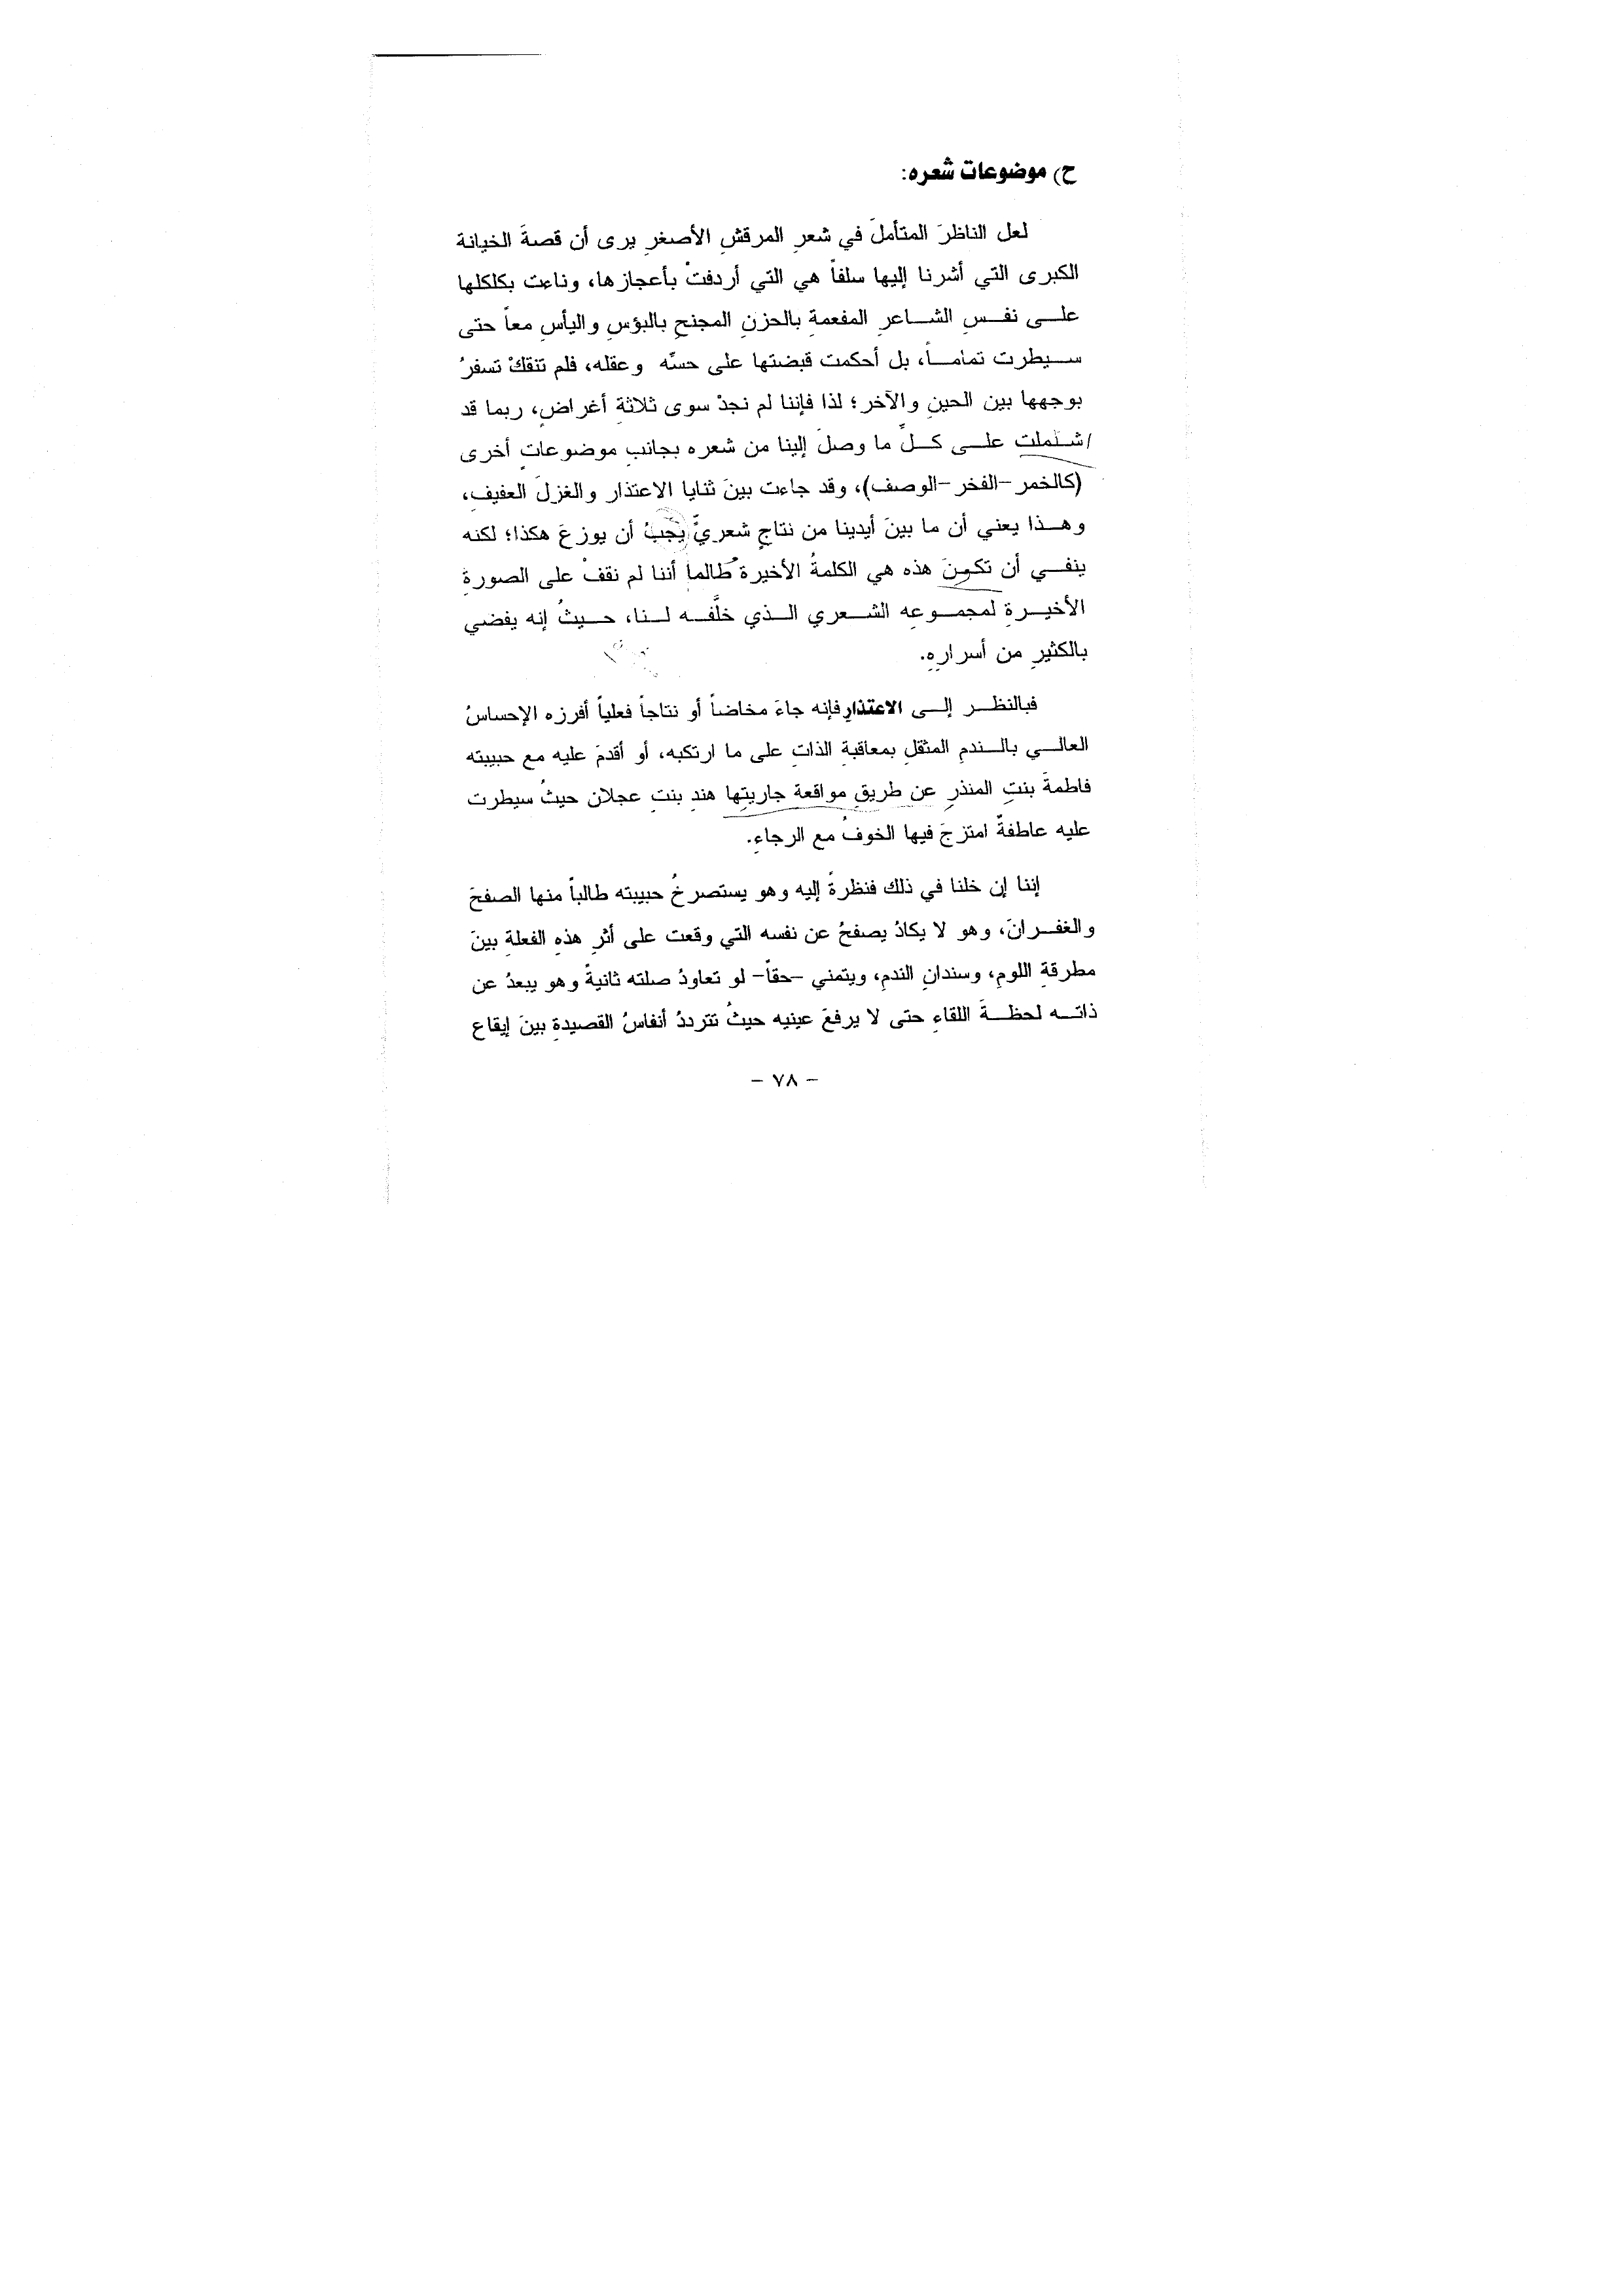 ح) موضوعات شعره:
لعل الناظرَ المتأملَ في شعرِ المرقشِ الأصغرِ يرى أن قصةَ الخيانة
الكبرى التي أشرنا إليها سلفاً هي التي أردفتْ بأعجازها، وناءت بكلكلها
على نفسِ الشاعرِ المفعمةِ بالحزنِ المجنحِ بالبؤسِ واليأسِ معاً حتى
سيطرت تماماً، بل أحكمت قبضتها على حسّه وعقله، فلم تنفكْ تسفرُ
بوجهها بين الحينِ والآخر؛ لذا فإننا لم نجدْ سوى ثلاثةِ أغراضٍ، ربما قد
اشتملت على كلِّ ما وصلَ إلينا من شعره بجانبِ موضوعاتٍ أخرى
(كالخمر-الفخر-الوصف)، وقد جاءت بينَ ثنايا الاعتذار والغزلَ العفيفِ،
وهذا يعني أن ما بينَ أيدينا من نتاجٍ شعريٍّ يَجبُ أن يوزعَ هكذا؛ لكنه
ينفي أن تكونَ هذه هي الكلمةُ الأخيرة طالما أننا لم نقفْ على الصورةِ
الأخيرةِ لمجموعهِ الشعري الذي خلَّفه لنا، حيثُ إنه يفضي
بالكثيرِ من أسرارهِ.
فبالنظر إلى الاعتذارِ فإنه جاءَ مخاضاً أو نتاجاً فعلياً أفرزه الإحساسُ
العالي بالندمِ المثقلِ بمعاقبةِ الذاتِ على ما ارتكبه، أو أقدمَ عليه مع حبيبته
فاطمةَ بنتِ المنذرِ عن طريقِ مواقعة جاريتِها هندِ بنتِ عجلان حيثُ سيطرت
عليه عاطفةٌ امتزجَ فيها الخوفُ مع الرجاءِ.
إننا إن خلنا في ذلك فنظرةً إليه وهو يستصرخُ حبيبته طالباً منها الصفحَ
والغفرانَ، وهو لا يكادُ يصفحُ عن نفسه التي وقعت على أثرِ هذهِ الفعلةِ بينَ
مطرقةِ اللومِ، وسندانِ الندمِ، ويتمني -حقاً- لو تعاودُ صلته ثانيةً وهو يبعدُ عن
ذاته لحظةَ اللقاءِ حتى لا يرفعَ عينيه حيثُ تترددُ أنفاسُ القصيدةِ بينَ إيقاع
- ٧٨ -